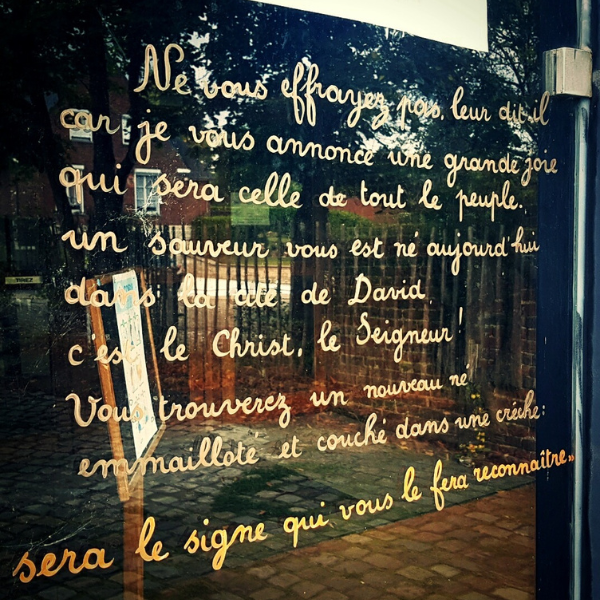 Ne vous effrayez pas, leur dit-il
car je vous annonce une grande joie
qui sera celle de tout le peuple.
un sauveur vous est né aujourd'hui
dans la cité de David,
c'est le Christ, le Seigneur!
Vous trouverez un nouveau né
emmailloté et couché dans une crèche:
sera le signe qui vous le fera reconnaître»